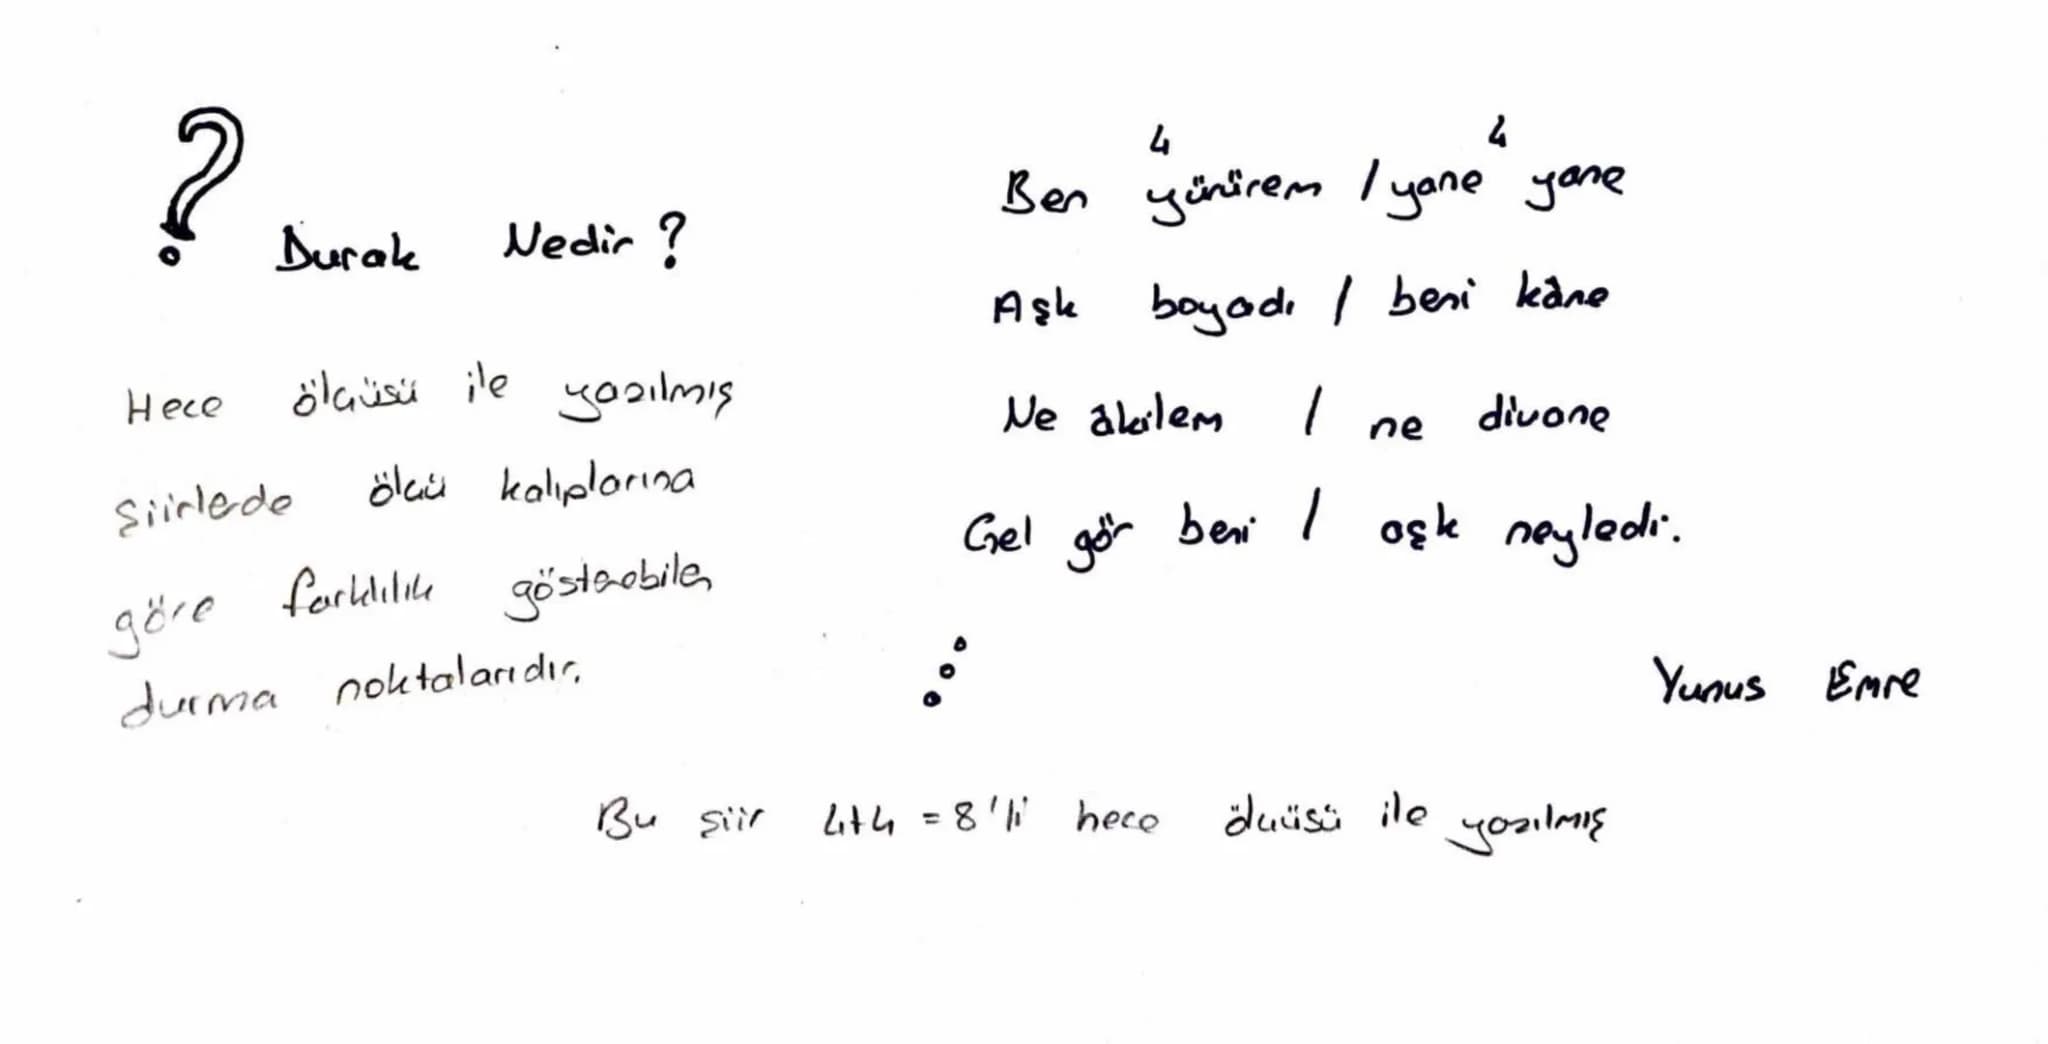 ? Durak Nedir ?
Hece ölçüsü ile yazılmış
şiirlerde ölçü kalıplarına
göre farklılık gösterebilen
durma noktalarıdır.
4 4
Ben yürürem / yane yane
Aşk boyadı / beni kâne
Ne âkilem / ne divane
Gel gör beni / aşk neyledi.
Yunus Emre
Bu şiir 4+4 = 8'li hece ölçüsü ile yazılmış